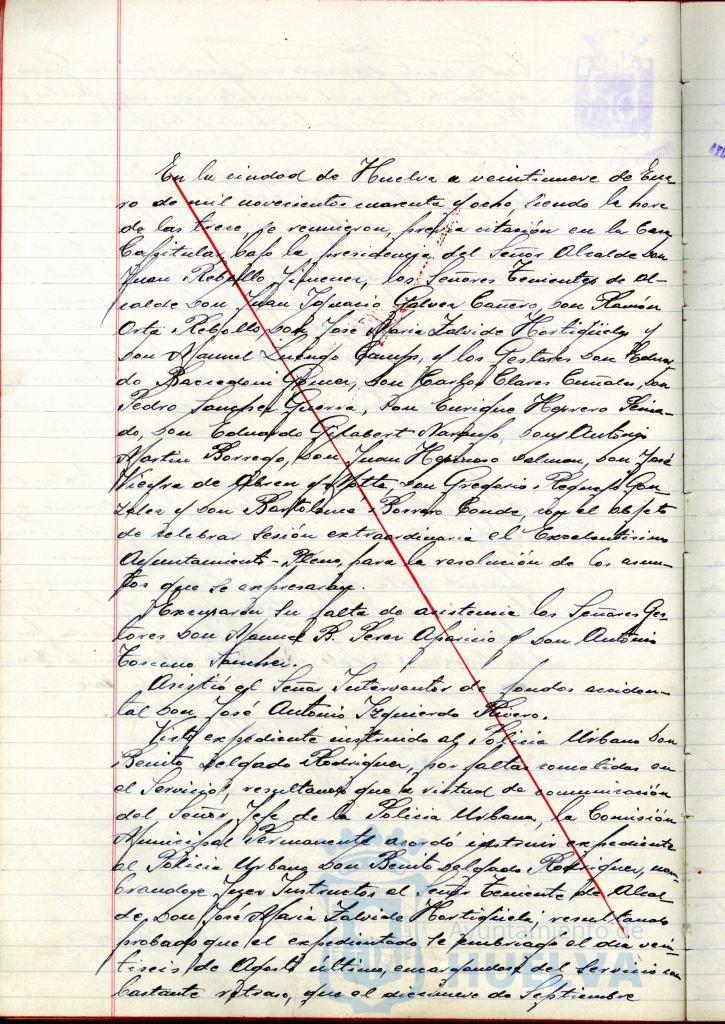 En la ciudad de Huelva a veintinueve de Ene-
ro de mil novecientos cuarenta y ocho, siendo la hora
de las trece, se reunieron, previa citación en la Casa
Capitular, bajo la presidencia del Señor Alcalde Don
Juan Rebollo Jimenez, los Señores Tenientes de Al-
calde Don Juan Ignacio Gálvez Cañero, Don Ramón
Orta Rebollo, Don José María Zalvide Hortigüela y
Don Manuel Luengo Camps, y los Gestores Don Eduar-
do Baccedoni Gómez, Don Carlos Clares Cuñales, Don
Pedro Sanchez Guerra, Don Enrique Herrero Peina-
do, Don Eduardo Gilabert Naranjo, Don Antonio
Martin Borrego, Don Juan Hermoso Salmón, Don José
Vieyra de Abreu y Motta, Don Gregorio Requejo Gon-
zalez y Don Bartolomé Borrero Conde, con el objeto
de celebrar sesión extraordinaria el Excelentísimo
Ayuntamiento-Pleno, para la resolución de los asun-
tos que se expresaran.
Excusaron su falta de asistencia los Señores Ges-
tores Don Manuel B. Perez Aparicio y Don Antonio
Toscano Sanchez.
Asistió el Señor Interventor de fondos acciden-
tal Don José Antonio Izquierdo Rivero.
Visto expediente instruido al Policia Urbano Don
Benito Delgado Rodriguez, por faltas cometidas en
el Servicio, resultando que a virtud de comunicación
del Señor Jefe de la Policia Urbana, la Comisión
Municipal Permanente acordó instruir expediente
al Policia Urbano Don Benito Delgado Rodriguez, nom-
brandose Juez Instructor al señor Teniente de Alcal-
de, Don José María Zalvide Hortigüela; resultando
probado que el expedientado se embriagó el día vein-
tiseis de Agosto último, encargandose del Servicio con
bastante retraso, que el diecinueve de Septiembre
Ayuntamiento de
HUELVA